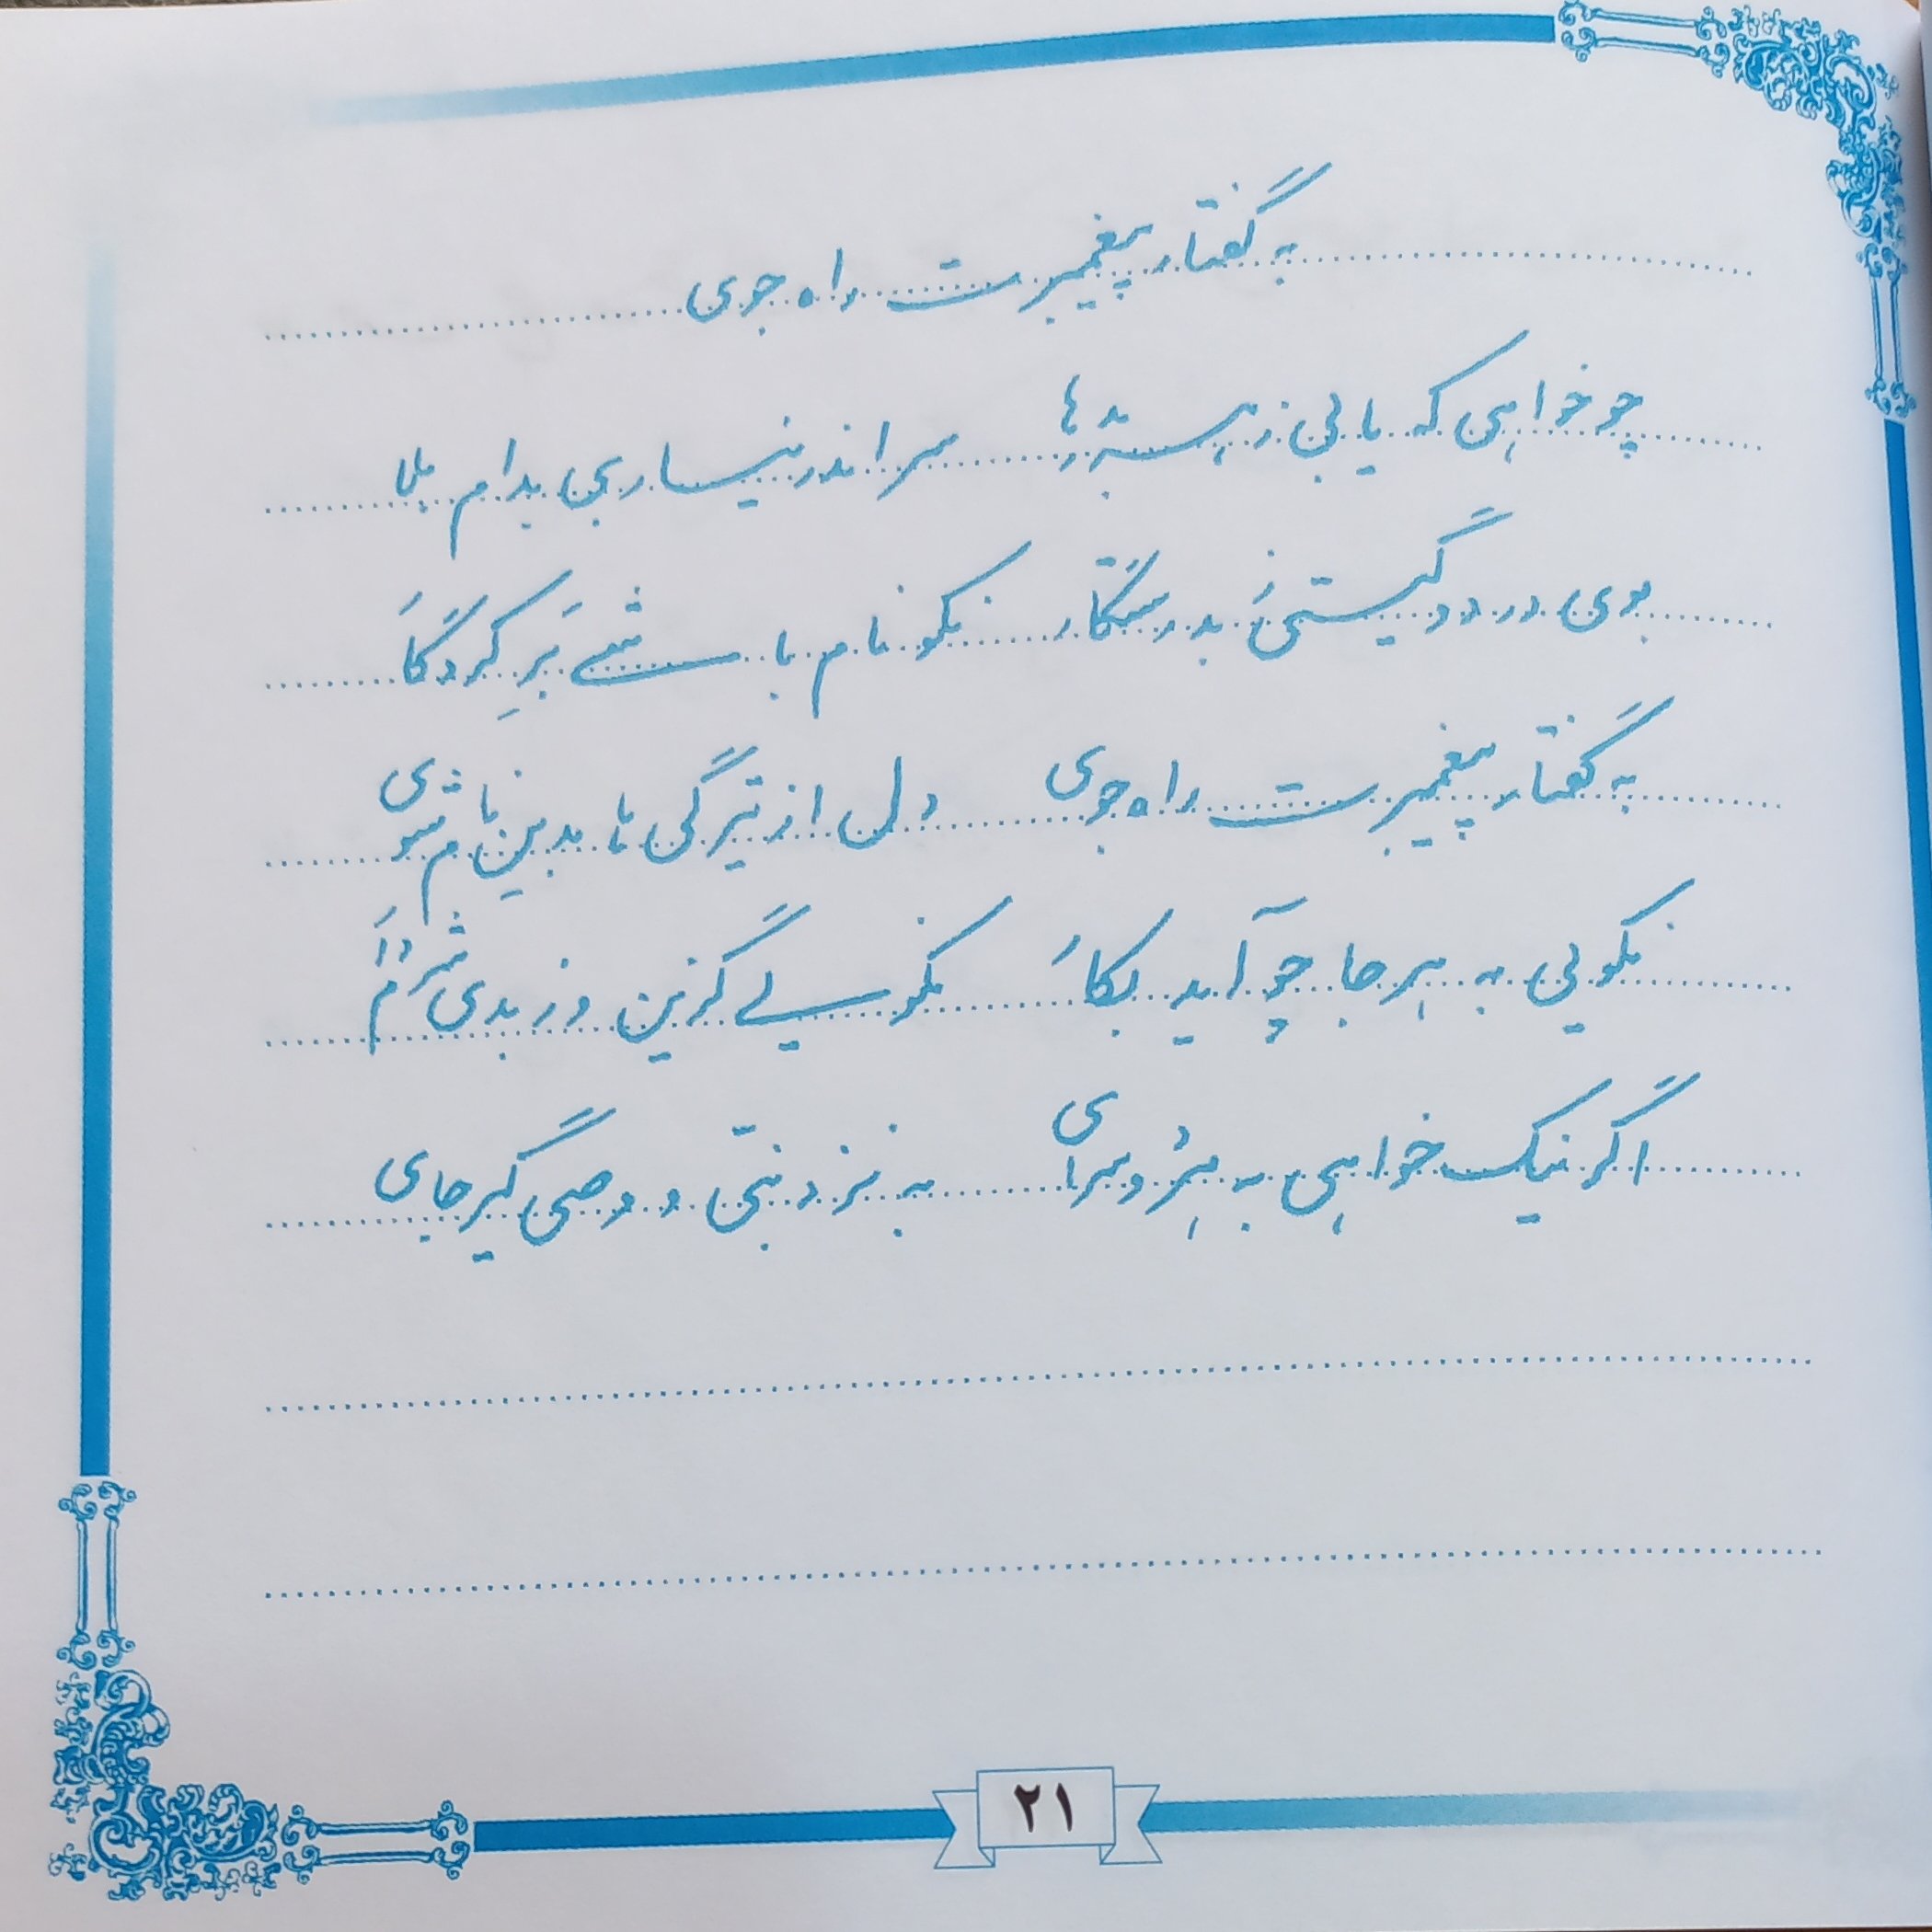 به گفتار پیغمبرت راه جوی
چو خواهی که یابی ز هر بد رها سر اندر نیاری بدام بلا
بوی در دو گیتی ز بد رستگار نکو نام باشی بَرِ کردگار
به گفتار پیغمبرت راه جوی دل از تیرگی ها بدین آب شوی
نکویی به هر جا چو آید بکار نکویی گزین وز بدی شرم دار
اگر نیک خواهی به هر دو سرای به نزد نبیّ و وصی گیر جای
۲۱